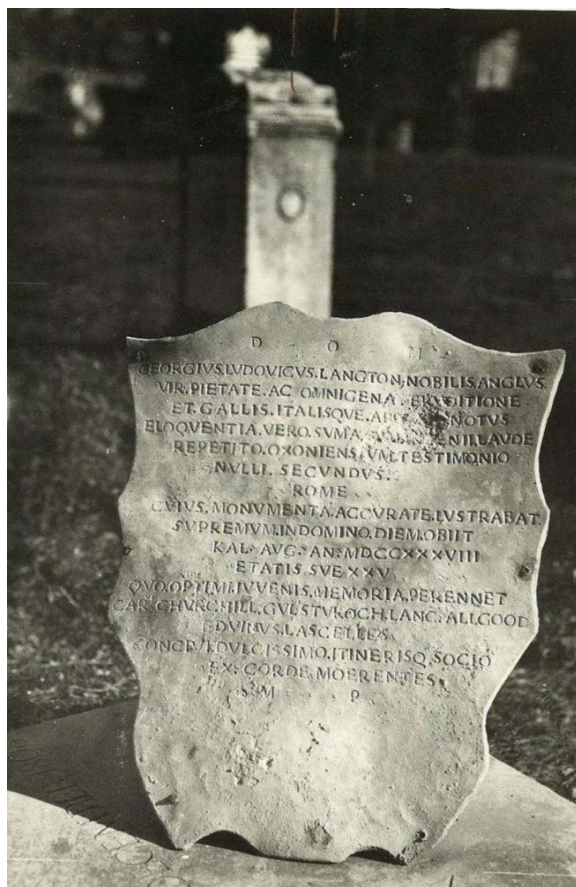 D O M
GEORGIVS.LVDOVICVS.LANGTON.NOBILIS.ANGLVS.
VIR.PIETATE.AC OMNIGENA.ERVDITIONE
ET.GALLIS.ITALISQVE. NOTVS
ELOQVENTIA.VERO.SVMA. LAVDE
REPETITO.OXONIENSIVM.TESTIMONIO
NVLLI.SECVNDVS.
ROME
CVIVS.MONVMENTA.ACCVRATE.LVSTRABAT.
SVPREMVM.INDOMINO.DIEM.OBIIT
KAL.AVG.AN.MDCCXXXVIII
ETATIS.SVE.XXV.
QVO.OPTIMI.IVVENIS.MEMORIA.PERENNET
CAR.CHVRCHILL. LANC.ALLGOOD
LASCELLES
DVLCISSIMO.ITINERISQ.SOCIO
EX.CORDE.MOERENTES
S M P